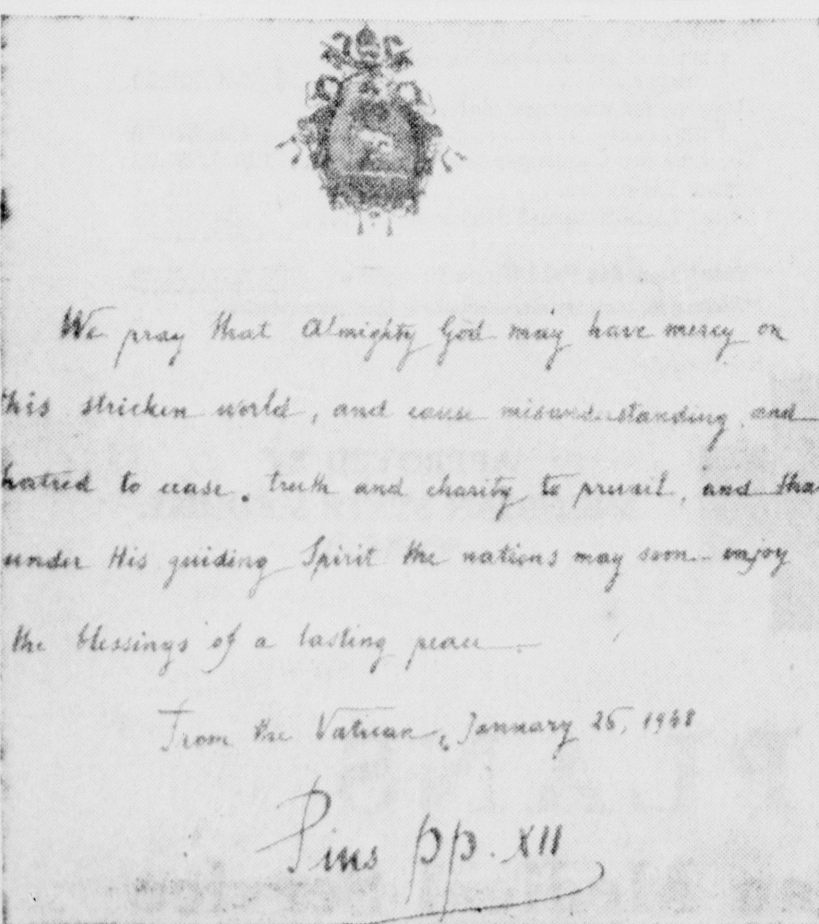 We pray that Almighty God may have mercy on
this stricken world, and cause misunderstanding and
hatred to cease, truth and charity to prevail, and tha
under His guiding Spirit the nations may soon enjoy
the blessings of a lasting peace.
From the Vatican, January 25, 1948
Pius pp. XII